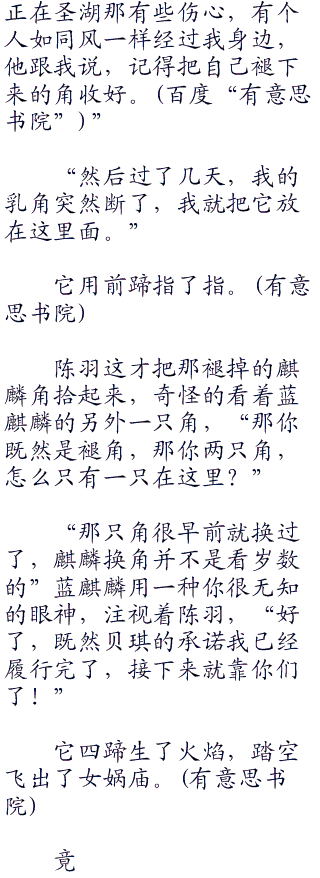 正在圣湖那有些伤心，有个
人如同风一样经过我身边，
他跟我说，记得把自己褪下
来的角收好。(百度“有意思
书院”)”
“然后过了几天，我的
乳角突然断了，我就把它放
在这里面。”
它用前蹄指了指。(有意
思书院)
陈羽这才把那褪掉的麒
麟角拾起来，奇怪的看着蓝
麒麟的另外一只角，“那你
既然是褪角，那你两只角，
怎么只有一只在这里？”
“那只角很早前就换过
了，麒麟换角并不是看岁数
的”蓝麒麟用一种你很无知
的眼神，注视着陈羽，“好
了，既然贝琪的承诺我已经
履行完了，接下来就靠你们
了！”
它四蹄生了火焰，踏空
飞出了女娲庙。(有意思书
院)
竟